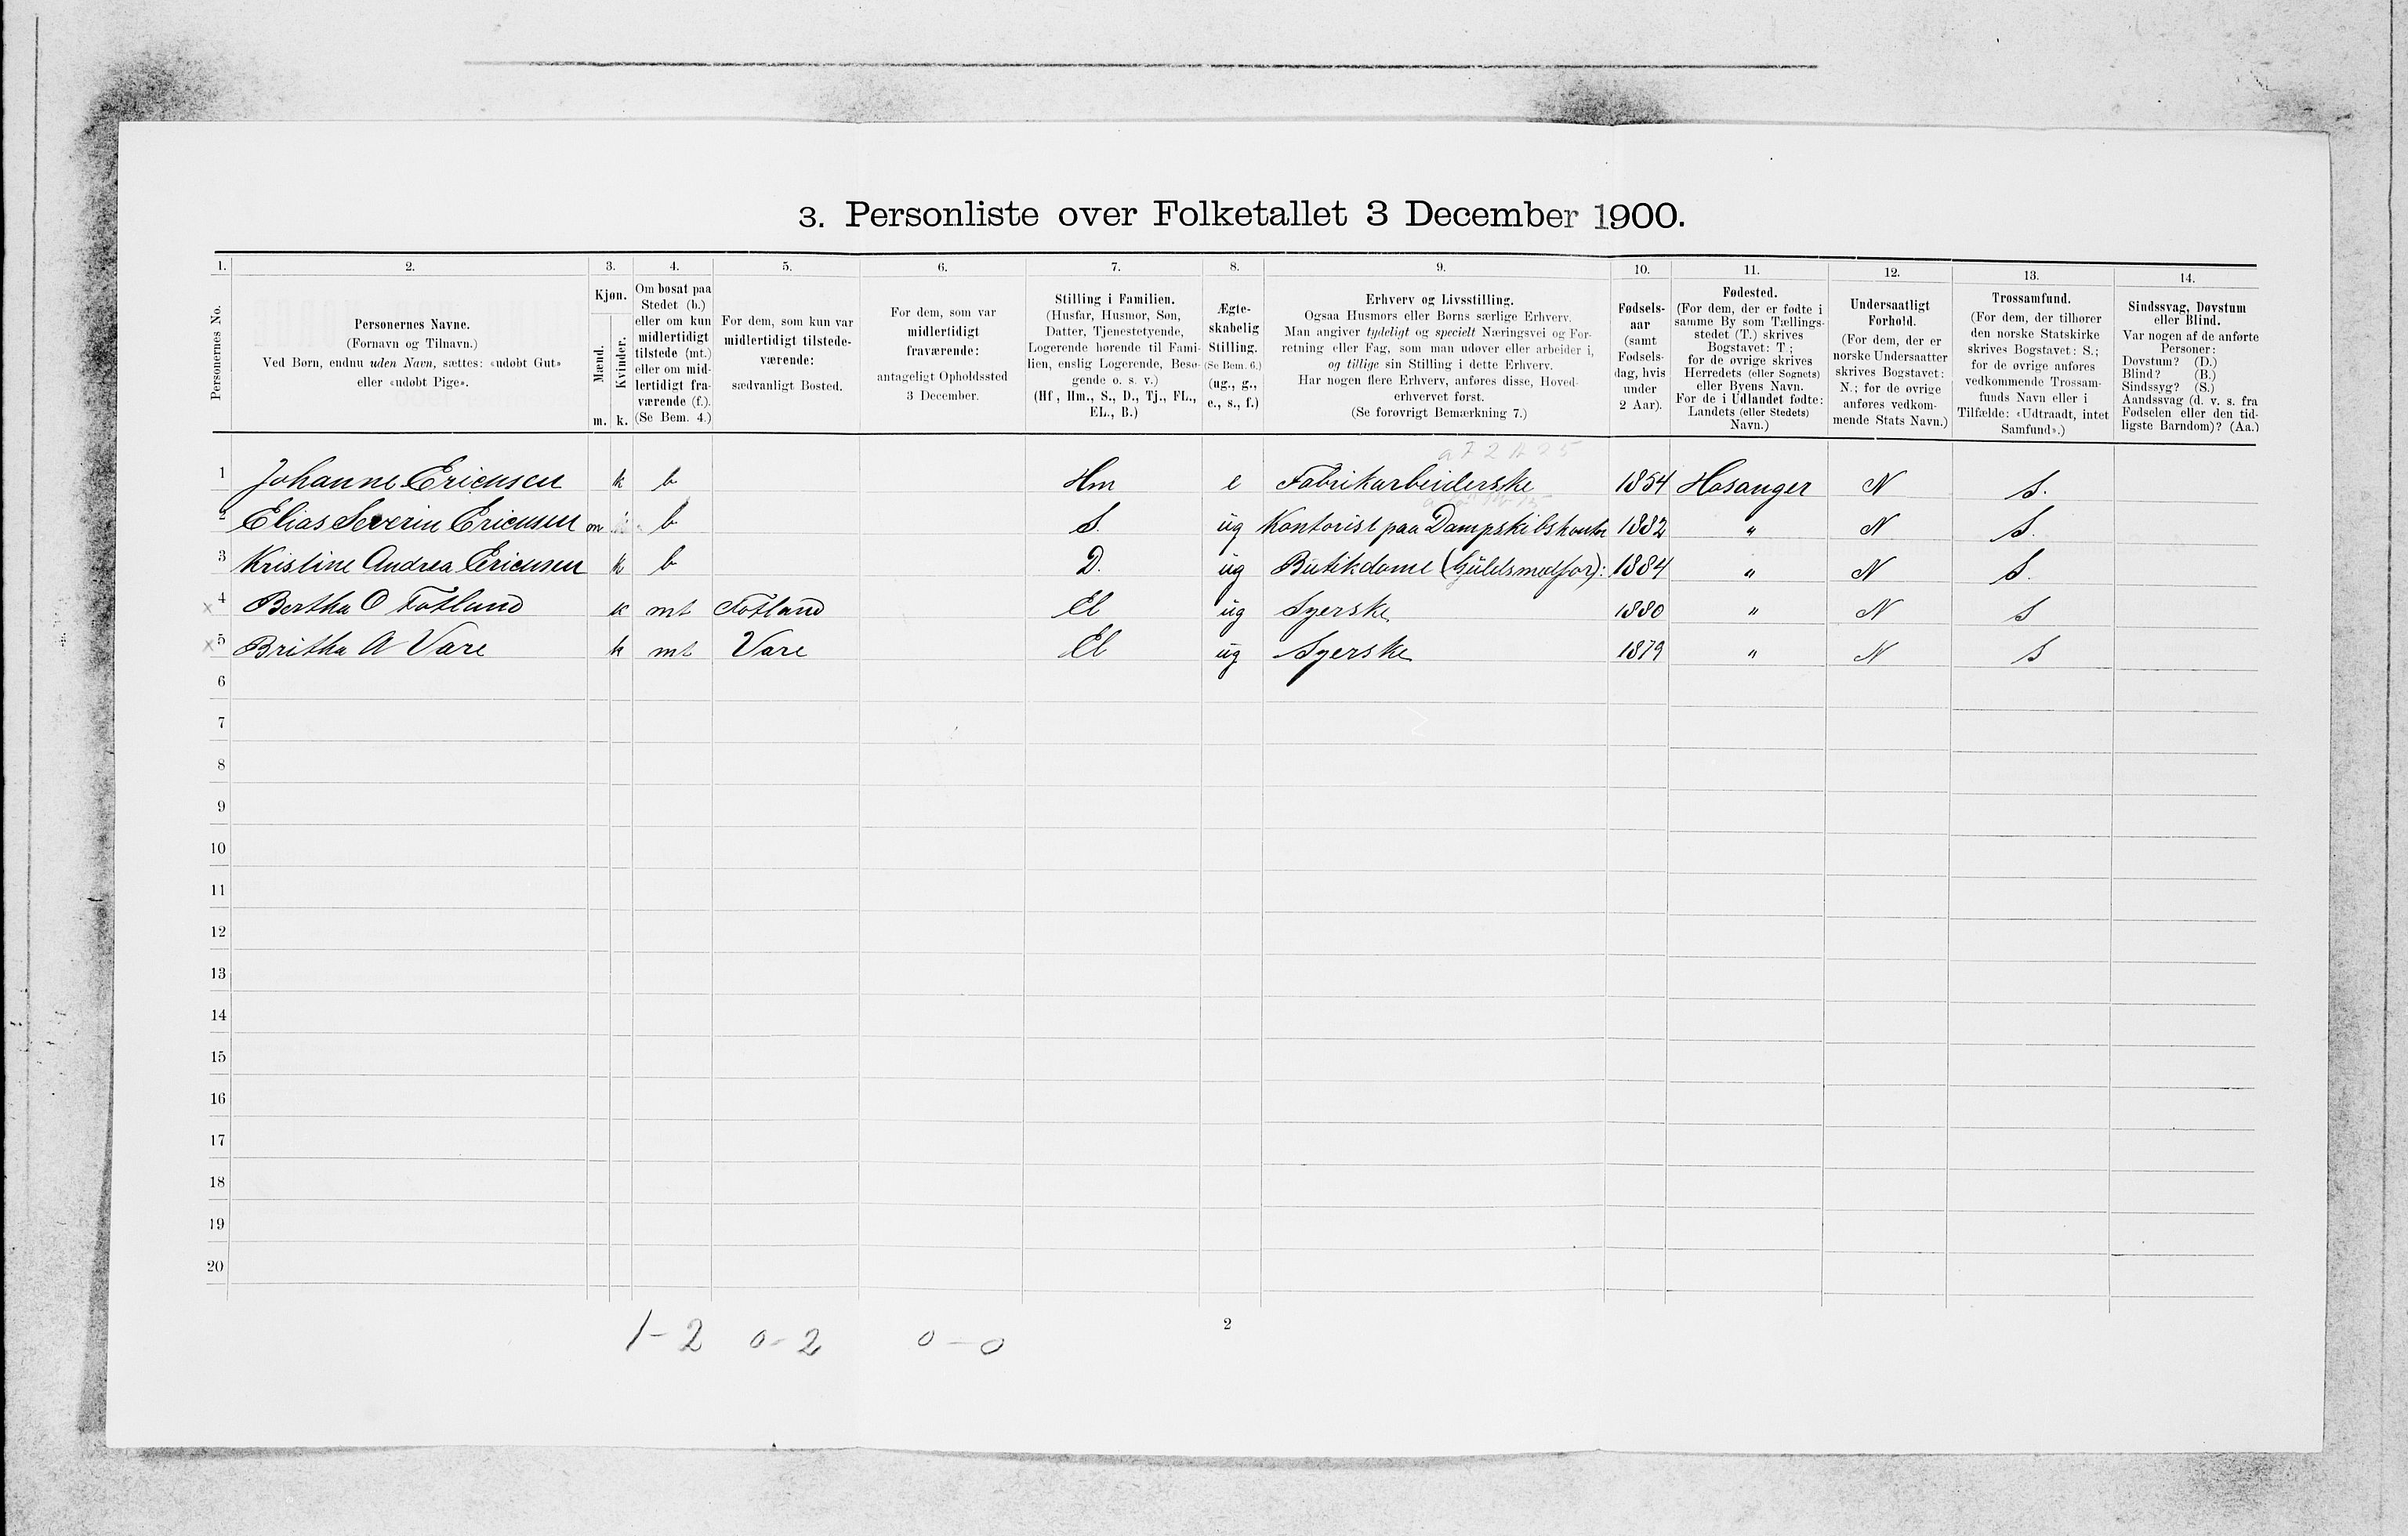 3. Personliste over Folketallet 3 December 1900.
1. 2. 3. 4. 5. 6. 7. 8. 9. 10. 11. 12. 13. 14.
Personernes No.
Personernes Navne.
(Fornavn og Tilnavn.)
Ved Børn, endnu uden Navn, sættes: «udøbt Gut»
eller «udøbt Pige».
Kjøn.
Mænd.
Kvinder.
m. k.
Om bosat paa
Stedet (b.)
eller om kun
midlertidigt
tilstede (mt.)
eller om mid-
lertidigt fra-
værende (f.).
(Se Bem. 4.)
For dem, som kun var
midlertidigt tilstede-
værende:
sædvanligt Bosted.
For dem, som var
midlertidigt
fraværende:
antageligt Opholdssted
3 December.
Stilling i Familien.
(Husfar, Husmor, Søn,
Datter, Tjenestetyende,
Logerende hørende til Fami-
lien, enslig Logerende, Besø-
gende o. s. v.)
(Hf, Hm., S., D., Tj., FL.,
EL., B.)
Ægte-
skabelig
Stilling.
(Se Bem. 6.)
(ug., g.,
e., s., f.)
Erhverv og Livsstilling.
Ogsaa Husmors eller Børns særlige Erhverv.
Man angiver tydeligt og specielt Næringsvei og For-
retning eller Fag, som man udøver eller arbeider i,
og tillige sin Stilling i dette Erhverv.
Har nogen flere Erhverv, anføres disse, Hoved-
erhvervet først.
(Se forøvrigt Bemærkning 7.)
Fødsels-
aar
(samt
Fødsels-
dag, hvis
under
2 Aar).
Fødested.
(For dem, der er fødte i
samme By som Tællings-
stedet (T.) skrives
Bogstavet: T ;
for de øvrige skrives
Herredets (eller Sognets)
eller Byens Navn.
For de i Udlandet fødte:
Landets (eller Stedets)
Navn.)
Undersaatligt
Forhold.
(For dem, der er
norske Undersaatter
skrives Bogstavet:
N.; for de øvrige
anføres vedkom-
mende Stats Navn.)
Trossamfund.
(For dem, der tilhører
den norske Statskirke
skrives Bogstavet: S.;
for de øvrige anføres
vedkommende Trossam-
funds Navn eller i
Tilfælde: «Udtraadt, intet
Samfund».)
Sindssvag, Døvstum
eller Blind.
Var nogen af de anførte
Personer:
Døvstum? (D.)
Blind? (B.)
Sindssyg? (S.)
Aandssvag (d. v. s. fra
Fødselen eller den tid-
ligste Barndom)? (Aa.)
1 Johanne Ericnsen k b Hm e Fabrikarbeiderske 1854 Hosanger N S.
2 Elias Severin Ericnsen m b S. ug Kontorist paa Dampskibskontor 1882 " N S.
3 Kristine Andrea Ericnsen k b D. ug Butikdame (Guldsmedfor): 1884 " N S.
x 4 Bertha O Fotland k mt Fotland El ug Syerske 1880 " N S
x 5 Britha A Vare k mt Vare El ug Syerske 1879 " N S
6
7
8
9
10
11
12
13
14
15
16
17
18
19
20
1-2 0-2 0-0
2